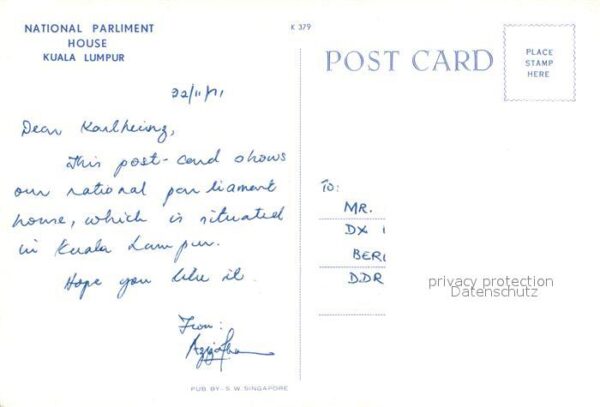 NATIONAL PARLIMENT
HOUSE
KUALA LUMPUR
22/11/71
Dear Karlheinz,
This post-card shows
our national parliament
house, which is situated
in Kuala Lumpur.
Hope you like it.
From:
PUB BY- S.W. SINGAPORE
K 379
POST CARD
PLACE
STAMP
HERE
TO:
MR.
DX
BER
D.DR
privacy protection
Datenschutz